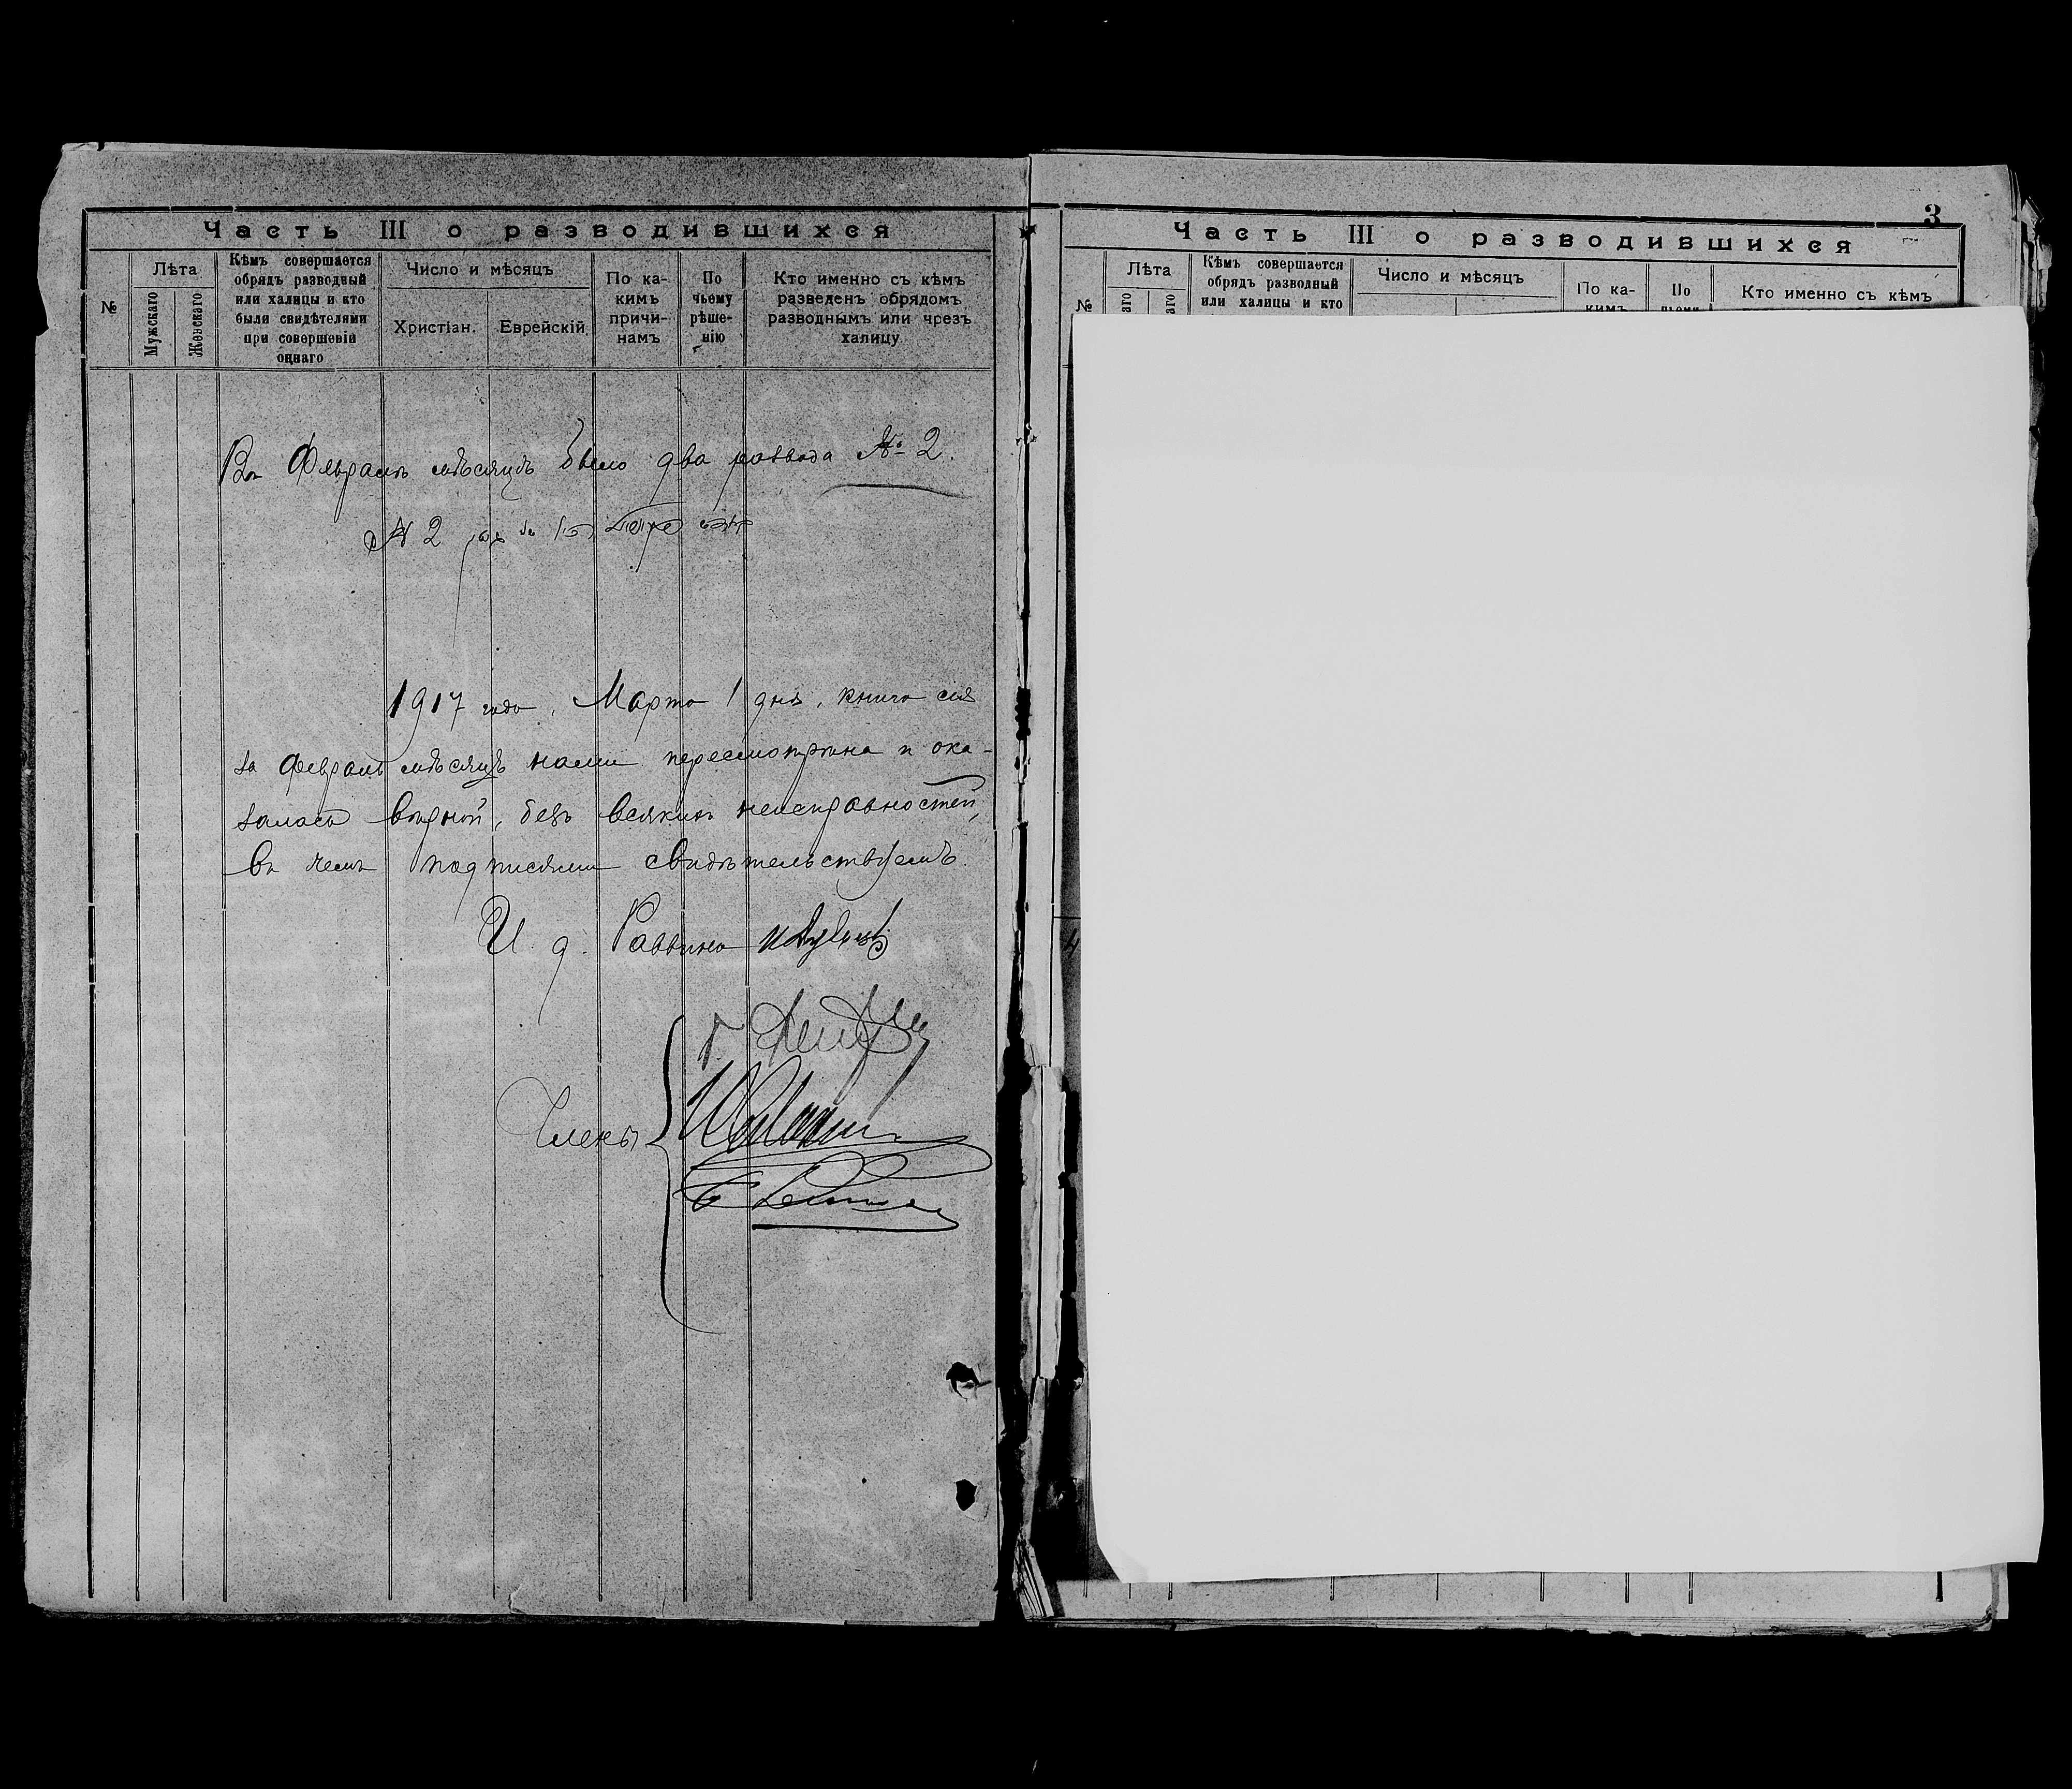 Часть III о разводившихся
№
Лѣта
Мужскаго
Женскаго
Кѣмъ совершается
обрядъ разводный
или халицы и кто
были свидѣтелями
при совершеніи
онаго
Число и мѣсяцъ
Христіан.
Еврейскій
По ка-
кимъ
причи-
намъ
По
чьему
рѣше-
нію
Кто именно съ кѣмъ
разведенъ обрядомъ
разводнымъ или чрезъ
халицу
Въ Февралѣ мѣсяцѣ было два развода № 2.
№ 2
1917 года, Марта 1 дня, книга сія
за Февраль мѣсяцъ нами пересмотрѣна и ока-
залась вѣрной, безъ всякихъ неисправностей,
въ чемъ подписями свидѣтельствуемъ.
И. д. Раввина
Члены
3
Часть III о разводившихся
№
Лѣта
Кѣмъ совершается
обрядъ разводный
или халицы и кто
Число и мѣсяцъ
По ка-
кимъ
По
чьему
Кто именно съ кѣмъ
4